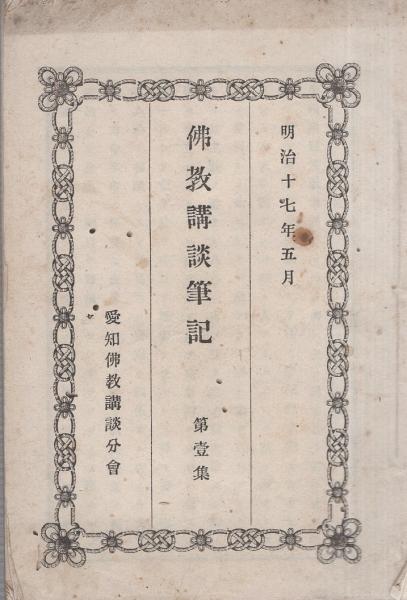 明治十七年五月
佛教講談筆記 第壹集
愛知佛教講談分會